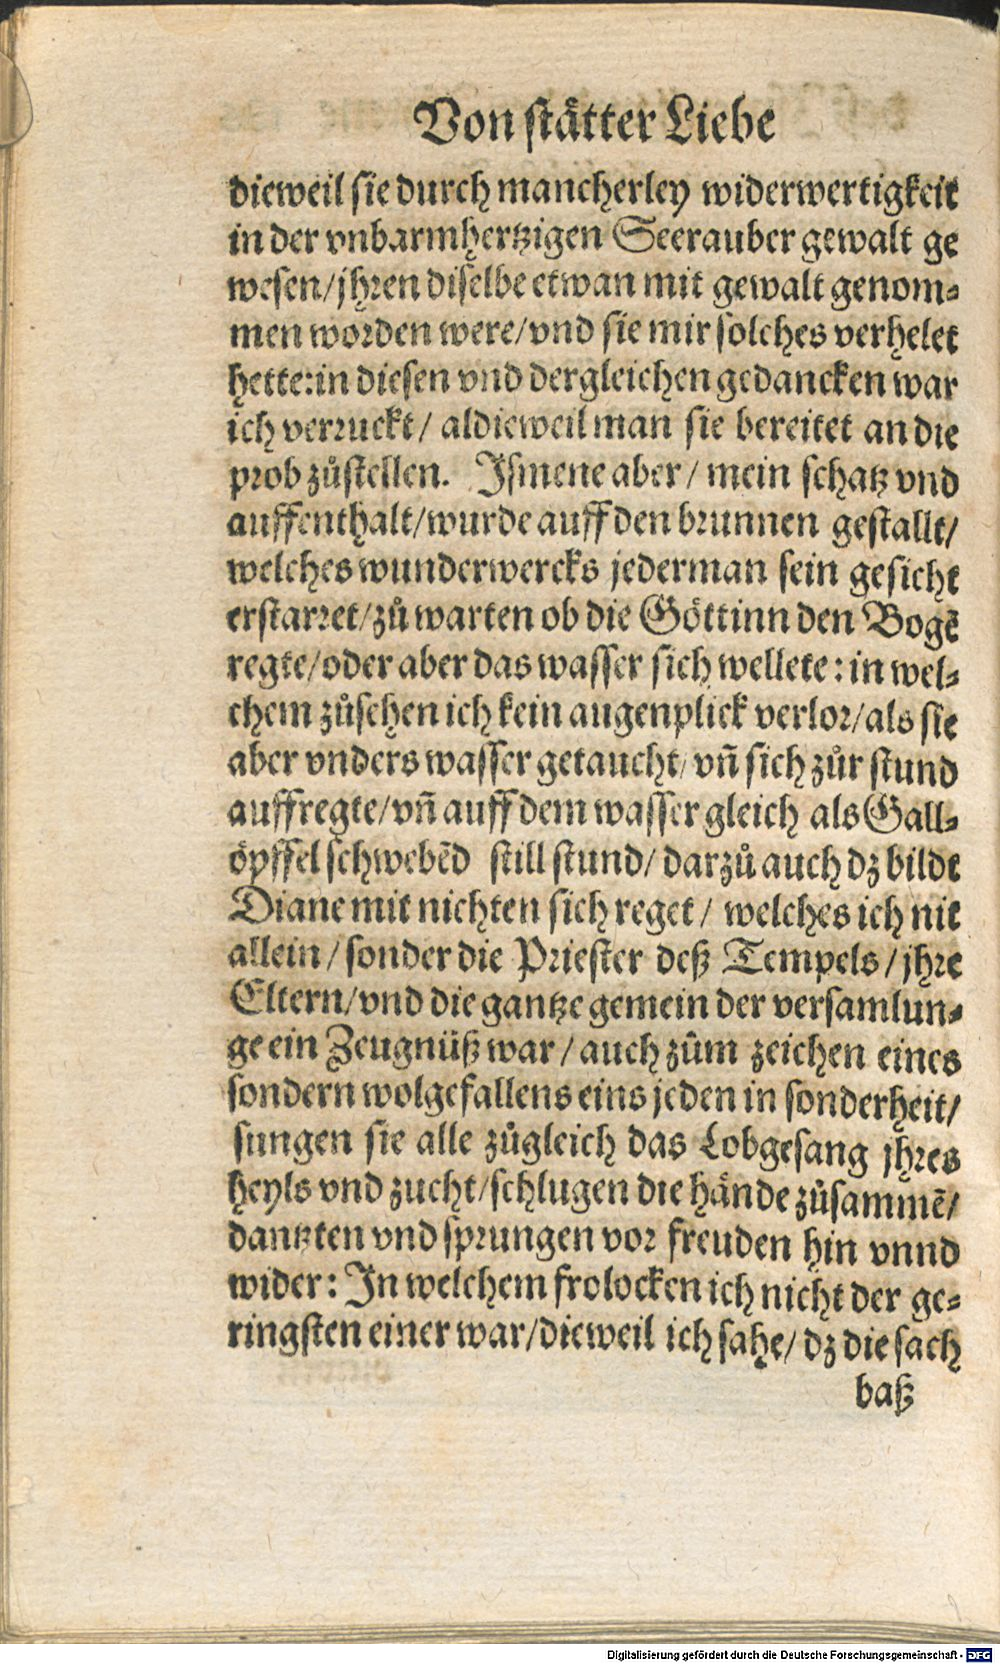 Von stätter Liebe
dieweil sie durch mancherley widerwertigkeit
in der vnbarmhertzigen Seerauber gewalt ge
wesen/jhren diselbe etwan mit gewalt genom⸗
men worden were/vnd sie mir solches verhelet
hette:in diesen vnd dergleichen gedancken war
ich verruckt/ aldieweil man sie bereitet an die
prob zůstellen. Ismene aber/ mein schatz vnd
auffenthalt/wurde auff den brunnen gestallt/
welches wunderwercks jederman sein gesicht
erstarret/zů warten ob die Göttinn den Bogẽ
regte/oder aber das wasser sich wellete: in wel⸗
chem zůsehen ich kein augenplick verlor/als sie
aber vnders wasser getaucht/ vñ sich zůr stund
auffregte/vñ auff dem wasser gleich als Gall⸗
öpffel schwebẽd still stund/ darzů auch dz bildt
Diane mit nichten sich reget/ welches ich nit
allein/ sonder die Priester deß Tempels/jhre
Eltern/vnd die gantze gemein der versamlun⸗
ge ein Zeugnüß war/ auch zům zeichen eines
sondern wolgefallens eins jeden in sonderheit/
sungen sie alle zůgleich das Lobgesang jhres
heyls vnd zucht/schlugen die hände zůsammẽ/
dantzten vnd sprungen vor freuden hin vnnd
wider: In welchem frolocken ich nicht der ge⸗
ringsten einer war/dieweil ich sahe/ dz die sach
baß
Digitalisierung gefördert durch die Deutsche Forschungsgemeinschaft - DFG